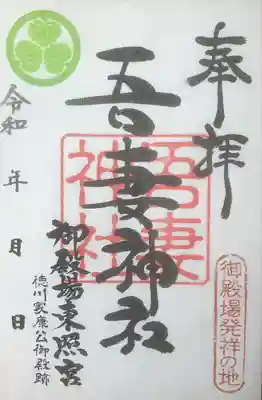 奉拝
吾妻神社
吾妻神社
御殿場東照宮
徳川家康公御殿跡
令和　年　月　日
御殿場発祥の地